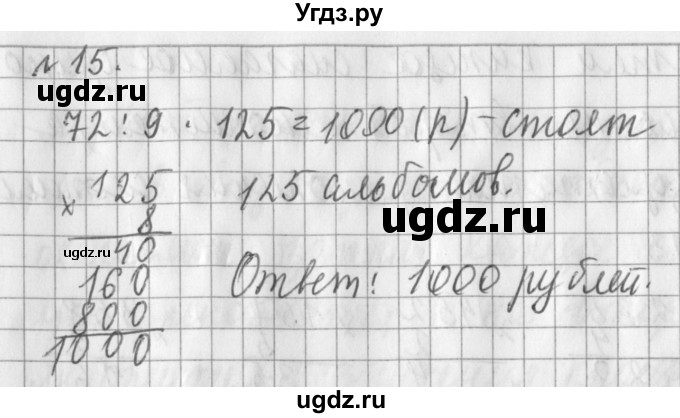 Угдз.ру
№ 15.
ugdz.ru
72 : 9 · 125 = 1000 (р) – стоят
125 125 альбомов.
× 8
ugdz.ru
ugdz.ru 40
160 Ответ: 1000 рублей.
800
1000
ugdz.ru
ugdz.ru